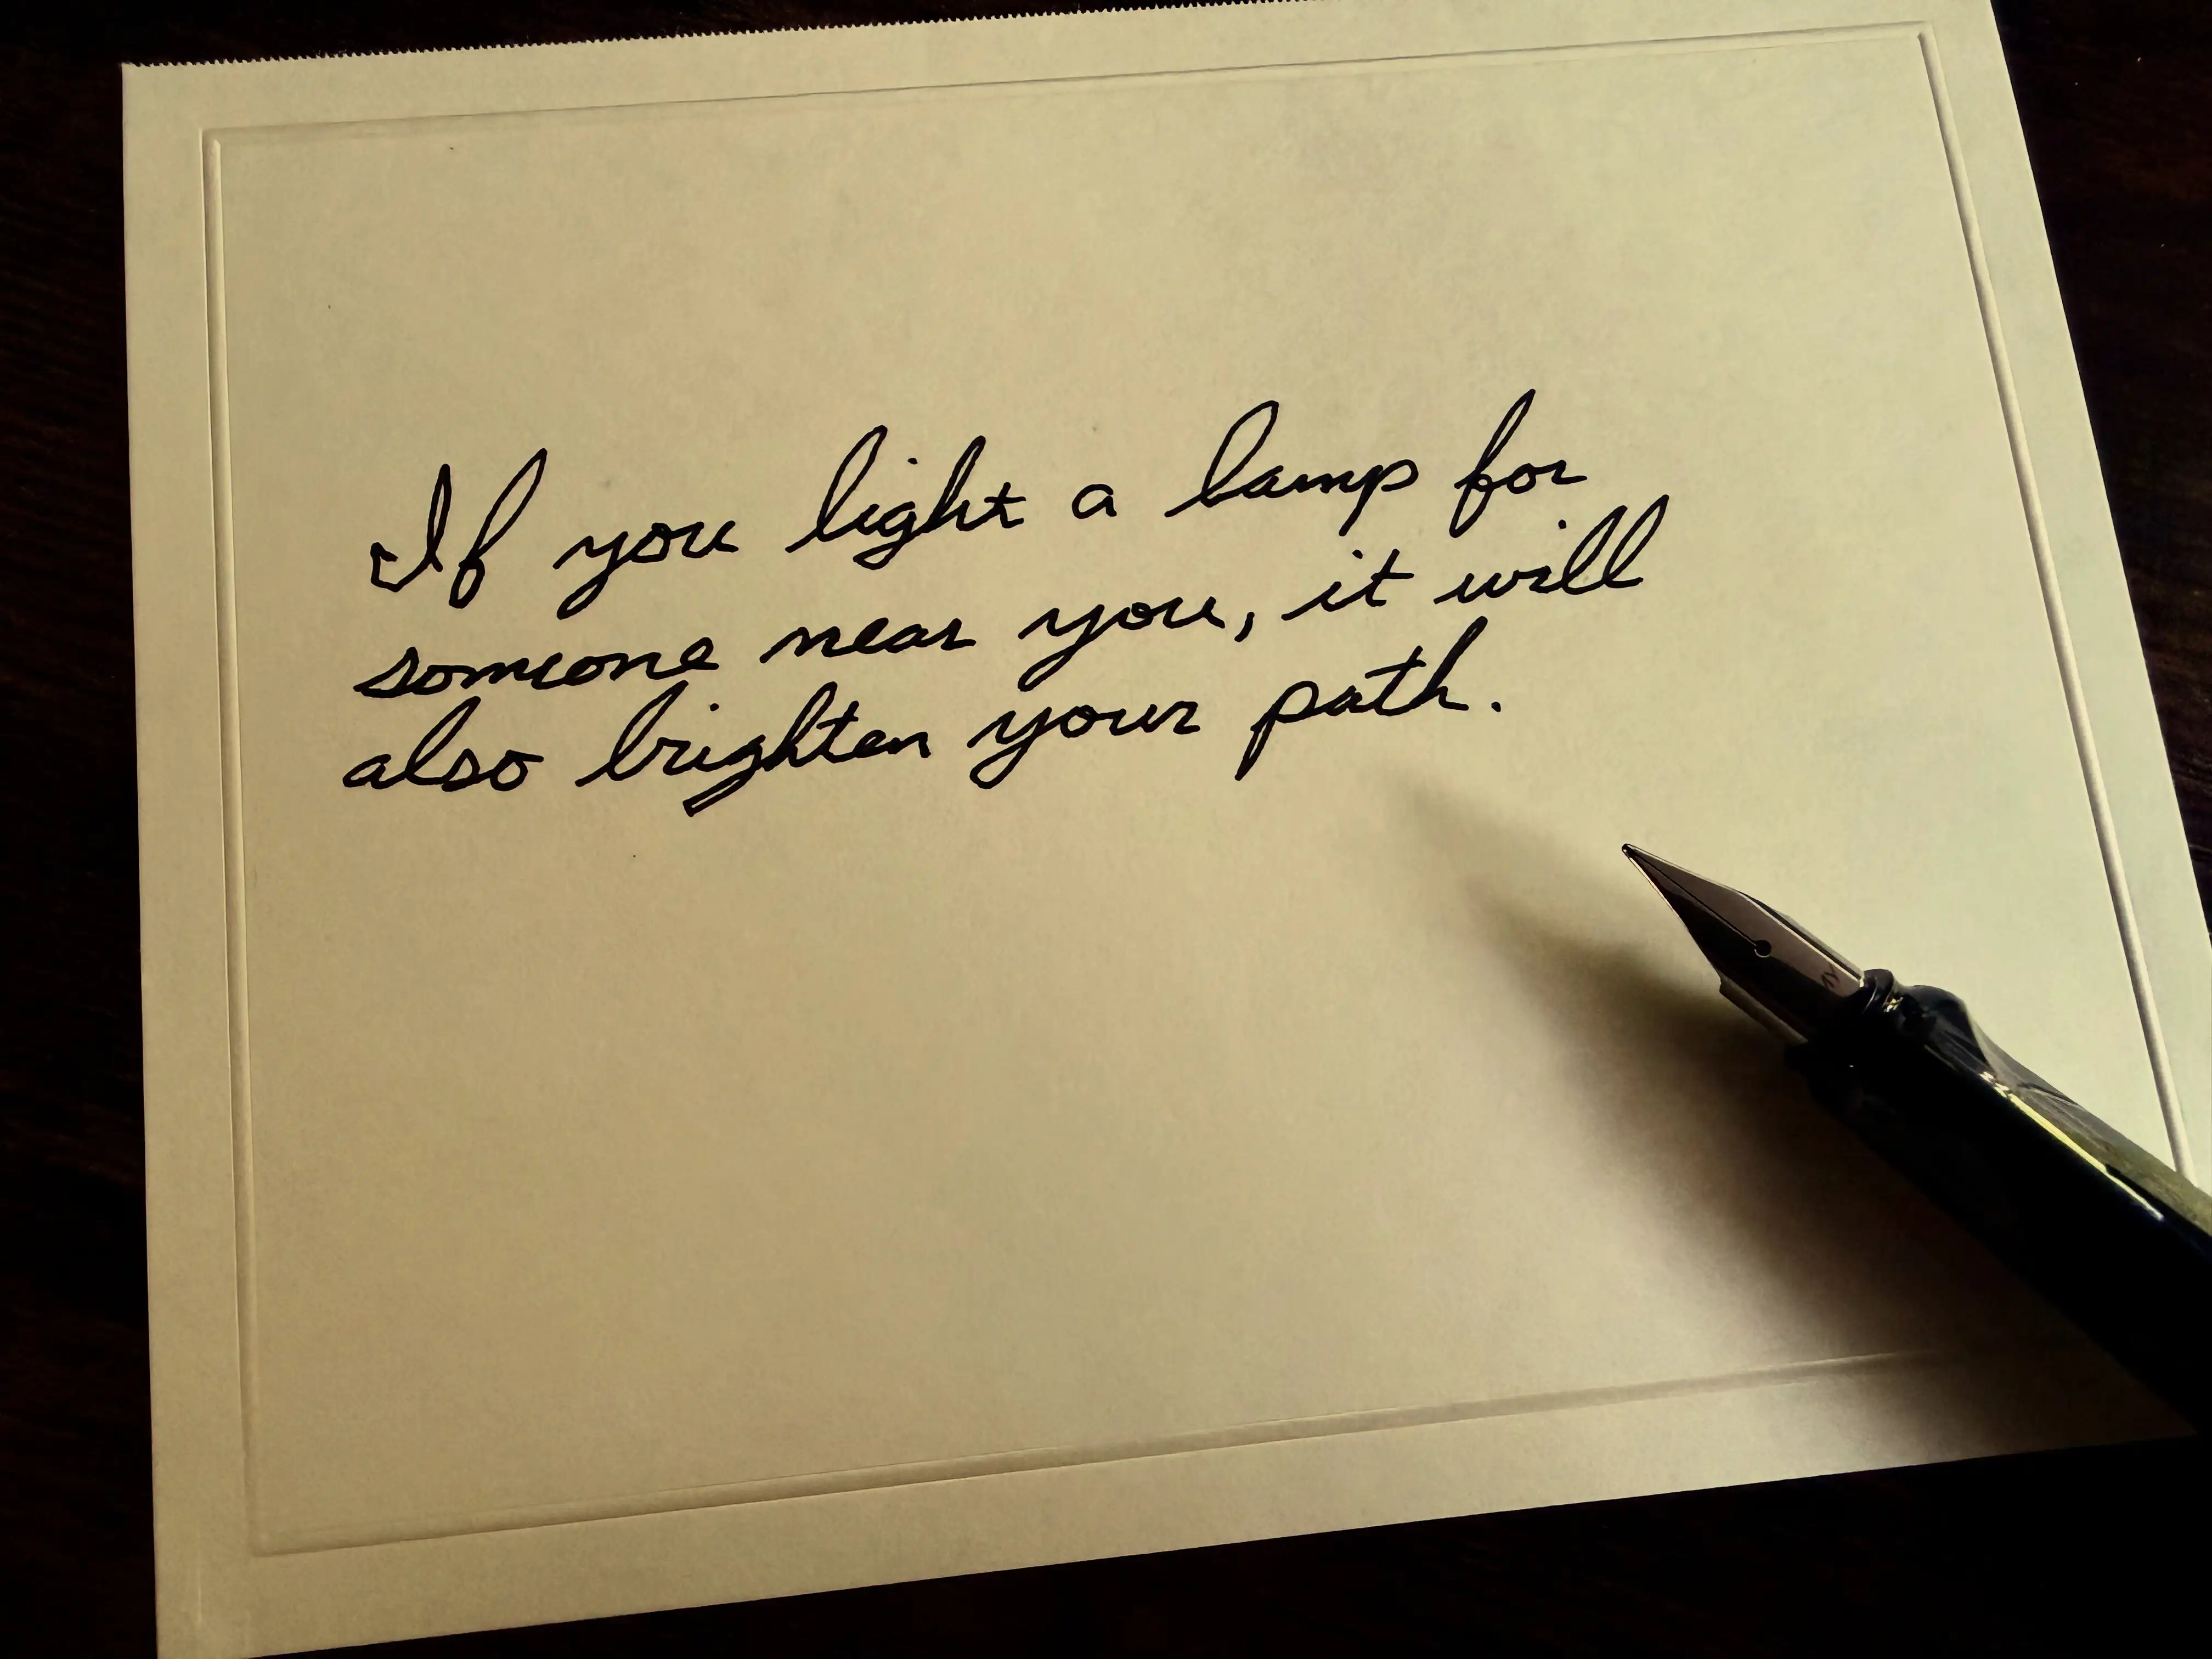 If you light a lamp for
someone near you, it will
also brighten your path.